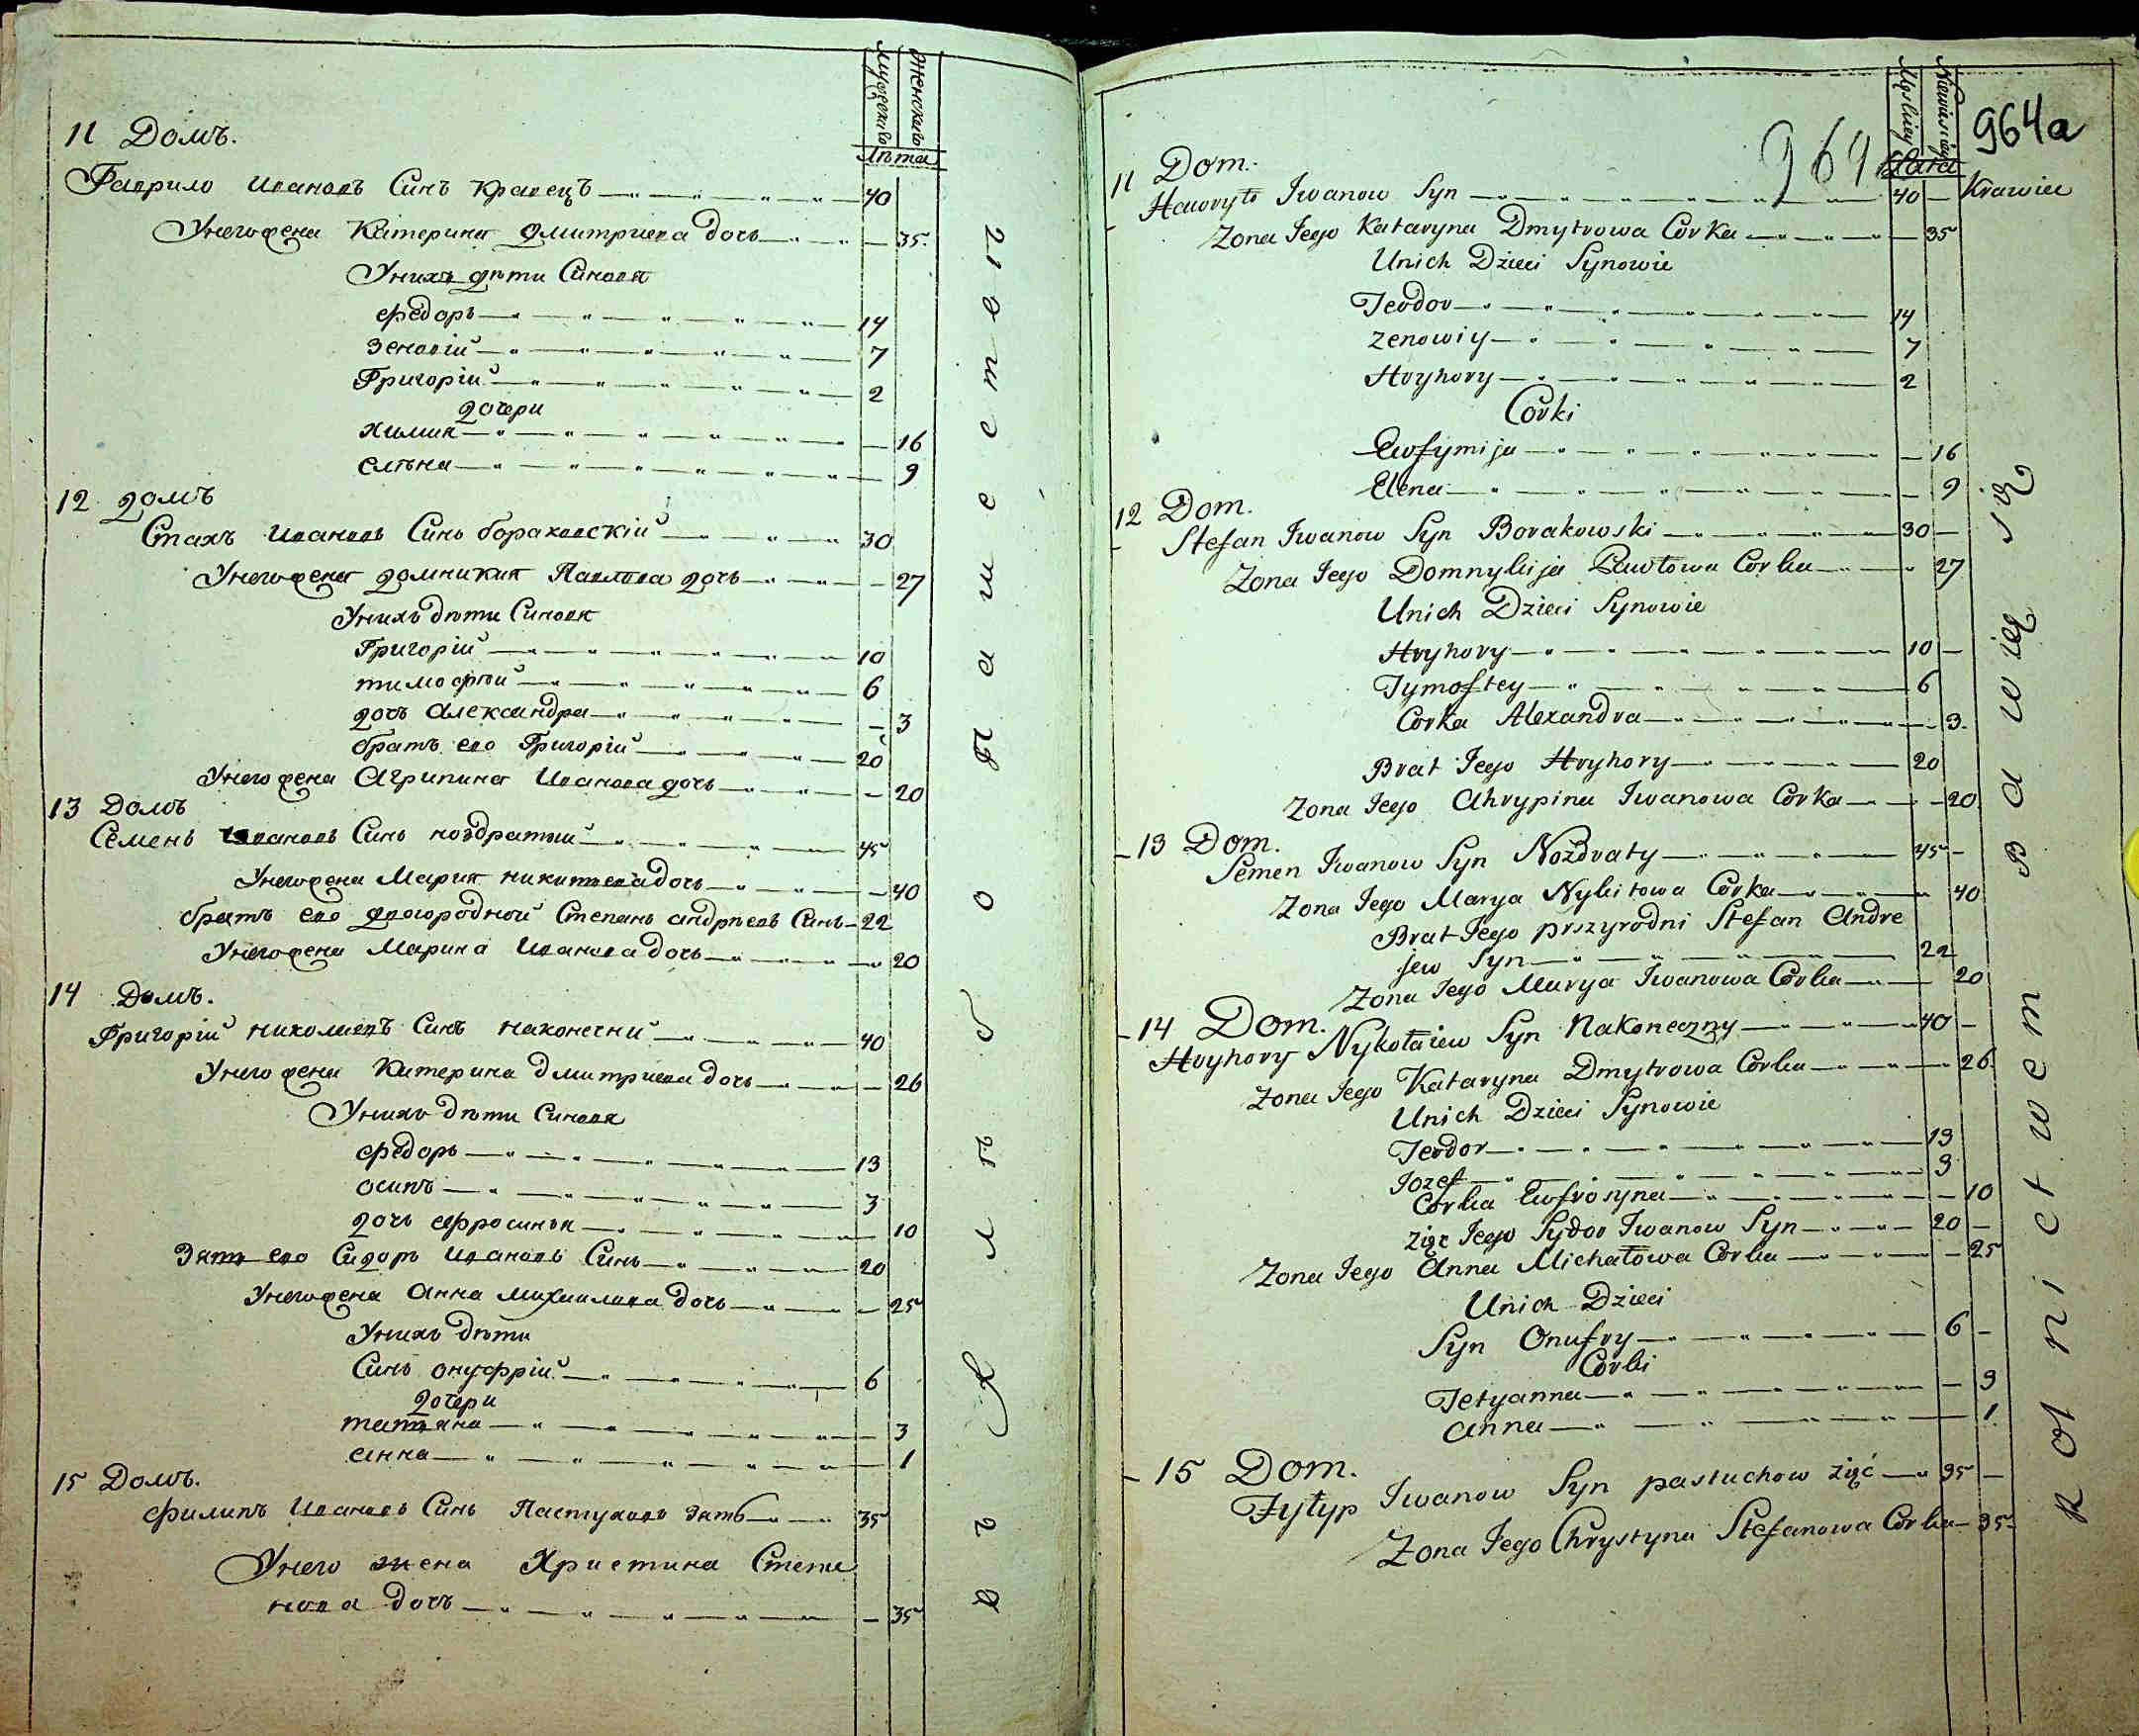 Мужескаго
Женскаго
Лѣта
11 Домъ.
Гаврило Ивановъ Синъ Кравецъ — 40
Унего жена Катерина Дмитриева дочь — 35
Унихъ дѣти Синовя
Федоръ — 14
Зеновій — 7
Григорій — 2
дочери
химия — 16
елѣна — 9
12 домъ
Стахъ Ивановъ Синъ бораховскій — 30
Унего жена домникия Павлова дочь — 27
Унихъ дѣти Синовя
Григорій — 10
тимофѣй — 6
дочь Александра — 3
братъ его Григорій — 20
Унего жена Агрипина Иванова дочь — 20
13 Домъ
Семенъ Ивановъ Синъноздратий — 45
Унего жена Мария никитева дочь — 40
братъ его двогородной Степанъ андрѣевъ Синъ — 22
Унего жена Марина Иванова дочь — 20
14 Домъ.
Григорій николаевъ Синъ наконечни — 40
Унего жена Катерина Дмитриева дочь — 26
Унихъ дѣти Синовя
Федоръ — 13
осипъ — 3
дочь ефросиния — 10
Зять его Сидоръ Ивановъ Синъ — 20
Унего жена Анна Михаилова дочь — 25
Унихъ дѣти
Синъ онуфрій — 6
дочери
татяна — 3
анна — 1
15 Домъ.
Филипъ Ивановъ Синъ Пастуховъ зять — 35
Унего жена Христина Степа
нова дочь — 35
964
964a
Męskiey
Niewieściey
Lata
11 Dom.
Hawryło Iwanow Syn — 40 — Krawiec
Zona Iego Kataryna Dmytrowa Corka — 35
Unich Dzieci Synowie
Teodor — 14
Zenowiy — 7
Hryhory — 2
Corki
Ewfymija — 16
Elena — 9
12 Dom.
Stefan Iwanow Syn Borakowski — 30 —
Zona Iego Domnykija Pawłowa Corka — 27
Unich Dzieci Synowie
Hryhory — 10 —
Tymoftey — 6
Corka Alexandra — 3.
Brat Iego Hryhory — 20
Zona Iego Ahrypina Iwanowa Corka — 20
13 Dom.
Semen Iwanow Syn Nozdraty — 45 —
Zona Iego Marya Nykitowa Corka — 40
Brat Iego przyrodni Stefan Andre
jew Syn — 22
Zona Iego Marya Iwanowa Corka — 20
14 Dom.
Hryhory Nykołaiew Syn Nakoneczny — 40 —
Zona Iego Kataryna Dmytrowa Corka — 26.
Unich Dzieci Synowie
Teodor — 13
Iozef — 3
Corka Ewfrosyna — 10
Zięć Iego Sydor Iwanow Syn — 20 —
Zona Iego Anna Michałowa Corka — 25
Unich Dzieci
Syn Onufry — 6 —
Corki
Tetyanna — 3
Anna — 1.
15 Dom.
Fyłyp Iwanow Syn pastuchow zięć — 35 —
Zona Iego Chrystyna Stefanowa Corka — 35
Bawią się
Rolnictwem